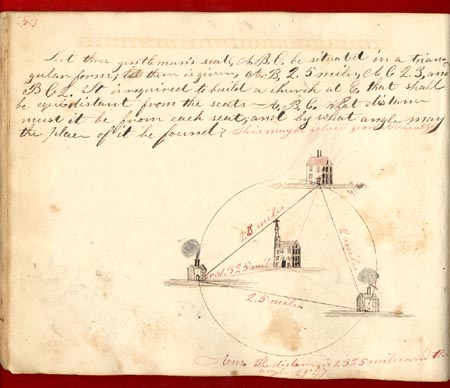 Let three gentleman's seats, A. B. C. be situated in a trian-
gular form, there is given, A B, 2.5 miles, A C 2.3, and
B C 2. It is required to build a church at E, that shall
be equi-distant from the seats A, B, C. what distance
must it be from each seat, and by what angle may
the place of it be found? This may be solved geometrically
2.3 miles
2 miles
1.325 miles
2.5 miles
Ans. The distance is 1.325 miles and the
angle